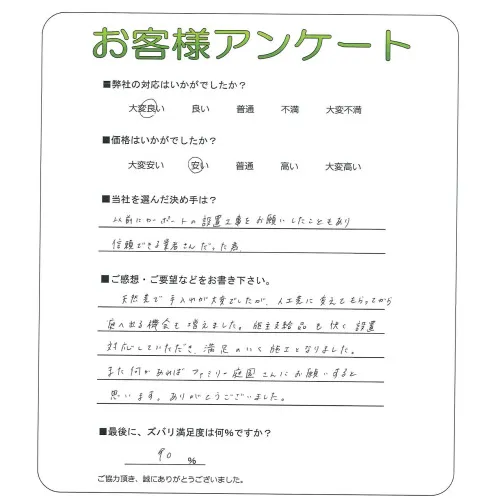 お客様アンケート
■弊社の対応はいかがでしたか?
大変良い 良い 普通 不満 大変不満
■価格はいかがでしたか?
大変安い 安い 普通 高い 大変高い
■当社を選んだ決め手は?
以前にカーポートの設置工事をお願いしたこともあり
信頼できる業者さんだった為
■ご感想・ご要望などをお書き下さい。
天然芝で手入れが大変でしたが、人工芝に変えてもらってから
庭へ出る機会も増えました。施主支給品も快く設置
対応していただき、満足のいく施工となりました。
また何かあればファミリー庭園さんにお願いすると
思います。ありがとうございました。
■最後に、ズバリ満足度は何%ですか?
90 %
ご協力頂き、誠にありがとうございました。